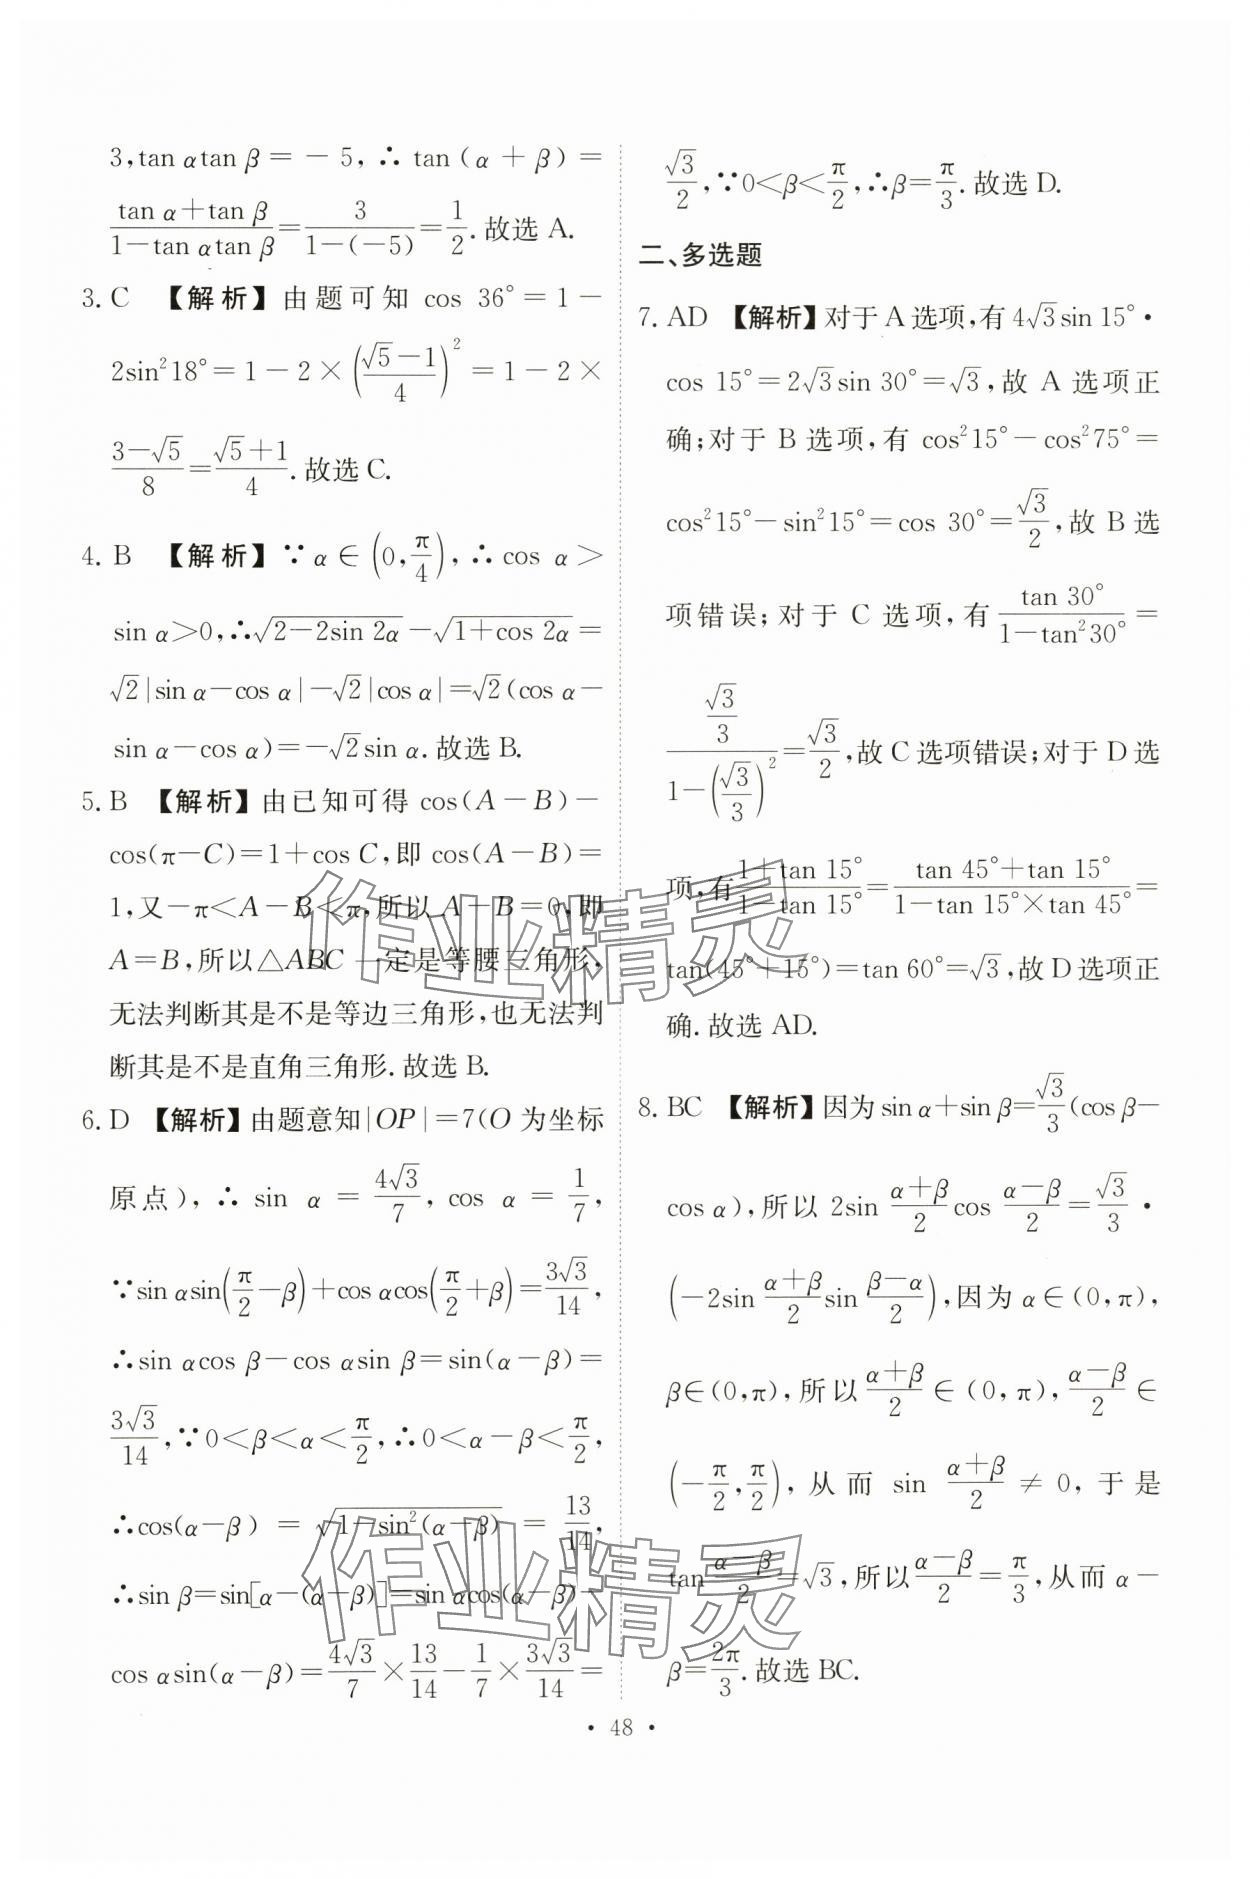 3,tan αtan β=-5,∴tan(α+β)=
(tan α+tan β)/(1-tan αtan β)=3/(1-(-5))=1/2.故选 A.
3. C 【解析】由题可知 cos 36°=1-
2sin²18°=1-2×((√5-1)/4)²=1-2×
(3-√5)/8=(√5+1)/4.故选 C.
4. B 【解析】∵α∈(0,π/4),∴cos α>
sin α>0,∴√(2-2sin 2α)-√(1+cos 2α)=
√2|sin α-cos α|-√2|cos α|=√2(cos α-
sin α-cos α)=-√2sin α.故选 B.
5. B 【解析】由已知可得 cos(A-B)-
cos(π-C)=1+cos C,即 cos(A-B)=
1,又-π<A-B<π,所以 A-B=0,即
A=B,所以△ABC 一定是等腰三角形,
无法判断其是不是等边三角形,也无法判
断其是不是直角三角形.故选 B.
6. D 【解析】由题意知|OP|=7(O 为坐标
原点),∴sin α=4√3/7,cos α=1/7,
∵sin αsin(π/2-β)+cos αcos(π/2+β)=3√3/14,
∴sin αcos β-cos αsin β=sin(α-β)=
3√3/14,∵0<β<α<π/2,∴0<α-β<π/2,
∴cos(α-β)=√(1-sin²(α-β))=13/14,
∴sin β=sin[α-(α-β)]=sin αcos(α-β)-
cos αsin(α-β)=4√3/7×13/14-1/7×3√3/14=
√3/2,∵0<β<π/2,∴β=π/3.故选 D.
二、多选题
7. AD 【解析】对于 A 选项,有 4√3sin 15°·
cos 15°=2√3sin 30°=√3,故 A 选项正
确;对于 B 选项,有 cos²15°-cos²75°=
cos²15°-sin²15°=cos 30°=√3/2,故 B 选
项错误;对于 C 选项,有 tan 30°/(1-tan²30°)=
(√3/3)/(1-(√3/3)²)=√3/2,故 C 选项错误;对于 D 选
项,有(1+tan 15°)/(1-tan 15°)=(tan 45°+tan 15°)/(1-tan 15°×tan 45°)=
tan(45°+15°)=tan 60°=√3,故 D 选项正
确.故选 AD.
8. BC 【解析】因为 sin α+sin β=√3/3(cos β-
cos α),所以 2sin (α+β)/2 cos (α-β)/2=√3/3·
(-2sin (α+β)/2 sin (β-α)/2),因为 α∈(0,π),
β∈(0,π),所以 (α+β)/2∈(0,π),(α-β)/2∈
(-π/2,π/2),从而 sin (α+β)/2≠0,于是
tan (α-β)/2=√3,所以 (α-β)/2=π/3,从而 α-
β=2π/3.故选 BC.
· 48 ·
作业精灵
作业精灵